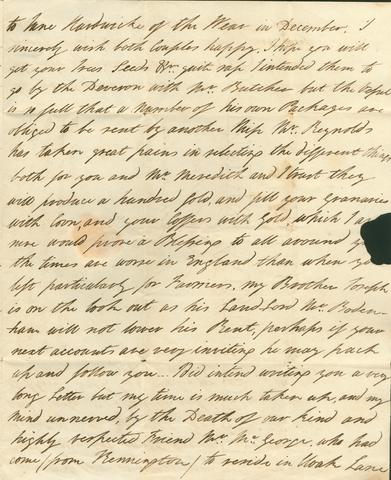 to Jane Hardwicke of the Wear in December. I
sincerely wish both Couples happy. I hope you will
get your Trees Seeds &c. quite safe I intended them to
go by the Deveron with Mr. Butcher but the Vessel
is so full that a Number of his own Packages are
obliged to be sent by another Ship Mr. Reynolds
has taken great pains in selecting the different things
both for you and Mr. Meredith and I trust they
will produce a hundred fold, and fill your Granaries
with Corn, and your Coffers with Gold, which I am
sure would prove a Blessing to all around you
the times are worse in England than when you
left particularly for Farmers, my Brother Joseph
is on the look out as his Land Lord Mr. Boden-
ham will not lower his Rent, perhaps if your
next accounts are very inviting he may pack
up and follow you... I did intend writing you a very
long Letter but my time is much taken up, and my
Mind unnerved, by the Death of our kind and
highly respected Friend Mrs. Mc.George, who had
come (from Kennington) to reside in Lane